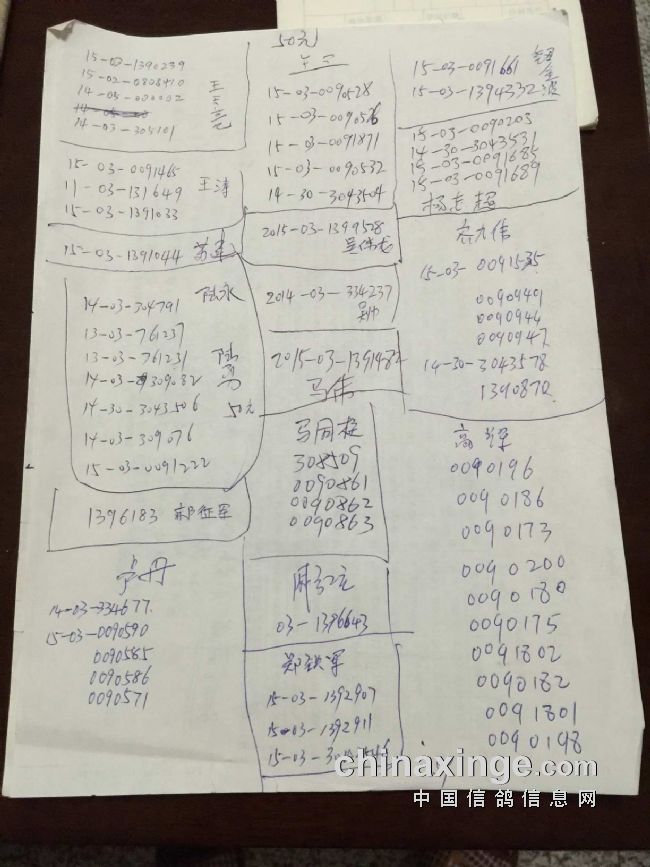 15-03-1390239
15-02-0808410
14-03-000002
14-03-305101
15-03-0091465
11-03-131649
王涛
15-03-1391033
15-03-1391044
14-03-304791
陆永
13-03-761237
13-03-761231
陆
14-03-309082
14-30-3043506
50元
14-03-309076
15-03-0091222
1396183
14-03-334677
15-03-0090590
0090585
0090586
0090571
50元
王三
15-03-0090528
15-03-0090526
15-03-0091871
15-03-0090532
14-30-3043504
2015-03-1399528
吴伟龙
2014-03-334237
2015-03-1391482
马伟
马同柱
308509
0090861
0090862
0090863
03-1386643
郑铁军
15-03-1392907
15-03-1392911
15-03-0091661
15-03-1394332
15-03-0090203
14-30-3043531
15-03-0091685
15-03-0091689
杨志超
15-03-0091535
0090949
0090944
0090947
14-30-3043578
1390870
高军
0090196
0090186
0090173
0090200
0090180
0090175
0091802
0090182
0091801
0090198
chinaxinge.com
中国信鸽信息网